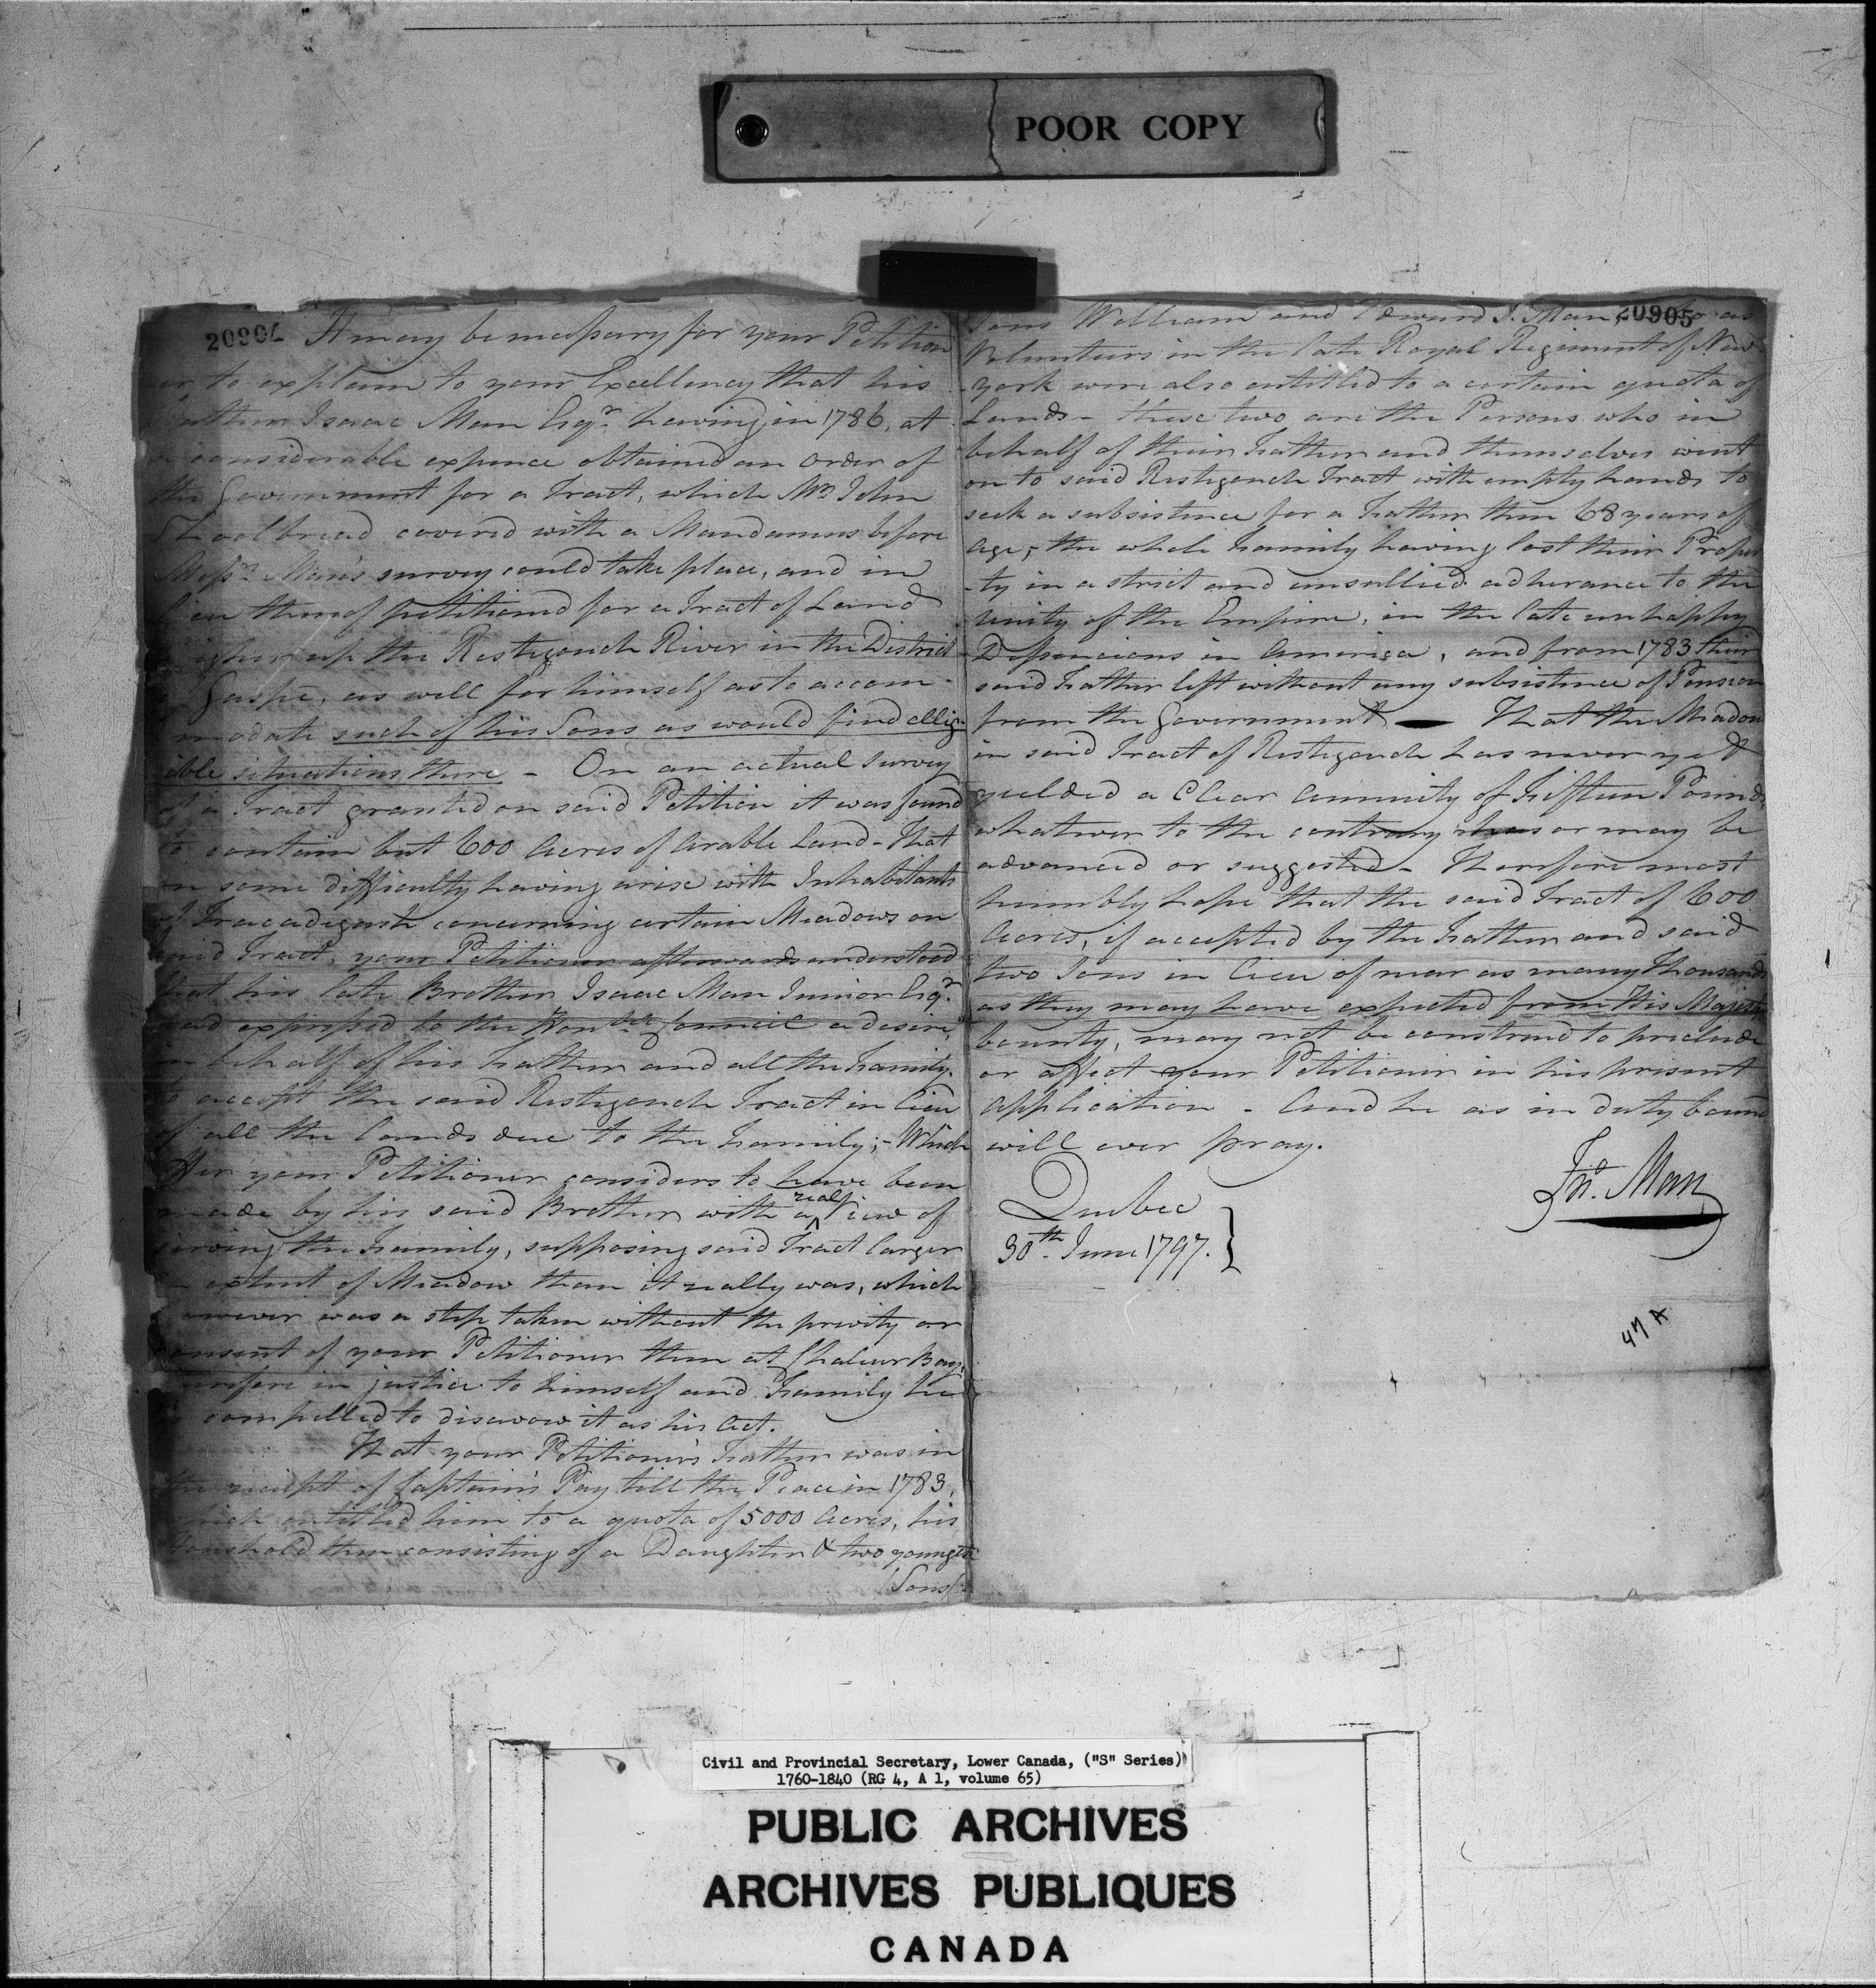 POOR COPY
20904 It may be necessary for your Petition
er to explain to your Excellency that his
Father Isaac Man Esqr. having in 1786, at
a considerable expence obtained an order of
the Government for a Tract, which Mr. John
Shoolbread covered with a Mandamus before
Messrs. Man's survey could take place, and in
lieu thereof petitioned for a Tract of Land
higher up the Restigouch River in the District
of Gaspé, as well for himself as to accom-
modate such of his Sons as would find ellig-
ible situations there - On an actual survey
of a Tract granted on said Petition it was found
to contain but 600 Acres of Arable Land - That
on some difficulty having arise with Inhabitants
of Tracadigash concerning certain Meadows on
said Tract, your Petitioner afterwards understood
that his late Brother Isaac Man Junior Esqr.
had expressed to the Honble. Council a desire,
in behalf of his Father and all the Family.
to accept the said Restigouch Tract in lieu
of all the Lands due to the Family; - Which
offer your Petitioner considers to have been
made by his said Brother with a real view of
serving the Family, supposing said Tract larger
in extent of Meadow than it really was, which
however was a step taken without the privity or
consent of your Petitioner then at Chaleur Bay.
therefore in justice to himself and Family he
is compelled to disavow it as his Act.
That your Petitioner's Father was in
the receipt of Captain's Pay till the Peace in 1783,
which entitled him to a quota of 5000 Acres, his
Household then consisting of a Daughter & two youngest
Sons
20905
Sons William and Edward I. Man, who as
Volunteers in the late Royal Regiment of New
york were also entitled to a certain quota of
Lands - these two are the Persons who in
behalf of their Father and themselves went
on to said Restigouch Tract with empty hands to
seek a subsistence for a Father then 68 years of
age; the whole Family having lost their Proper
-ty in a strict and unsullied adherance to the
Unity of the Empire, in the late unhappy
Dissencions in America, and from 1783 their
said Father left without any subsistence of Pension
from the Government — That the Meadow
in said Tract of Restigouch has never yet
yielded a Clear Annuity of Fifteen Pounds,
whatever to the contrary has or may be
advanced or suggested - Therefore most
humbly hope that the said Tract of 600
Acres, if accepted by the Father and said
two Sons in lieu of near as many Thousands
as they may have expected from His Majesty's
bounty, may not be construed to preclude
or affect your Petitioner in his present
Application - And he as in duty bound
will ever pray.
Jno. Man
Quebec
30th. June 1797.
47 A
Civil and Provincial Secretary, Lower Canada, ("S" Series)
1760-1840 (RG 4, A 1, volume 65)
PUBLIC ARCHIVES
ARCHIVES PUBLIQUES
CANADA